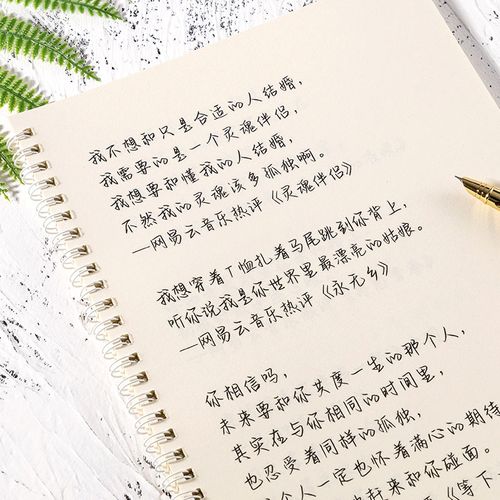 我不想和只是合适的人结婚，
我需要的是一个灵魂伴侣，
我想要和懂我的人结婚，
不然我的灵魂该多孤独啊。
—网易云音乐热评《灵魂伴侣》
我想穿着T恤扎着马尾跳到你背上，
听你说我是你世界里最漂亮的姑娘。
—网易云音乐热评《永无乡》
你相信吗，
未来要和你共度一生的那个人，
其实在与你相同的时间里，
也忍受着同样的孤独，
个人一定也怀着满心的期待
赶来和你碰面。
《等下